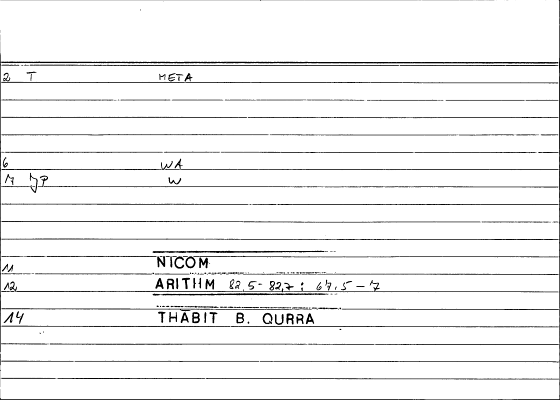 2 T META
6 WA
7 JP W
11 NICOM
12 ARITHM 82,5-82,7 : 67,5-7
14 THĀBIT B. QURRA